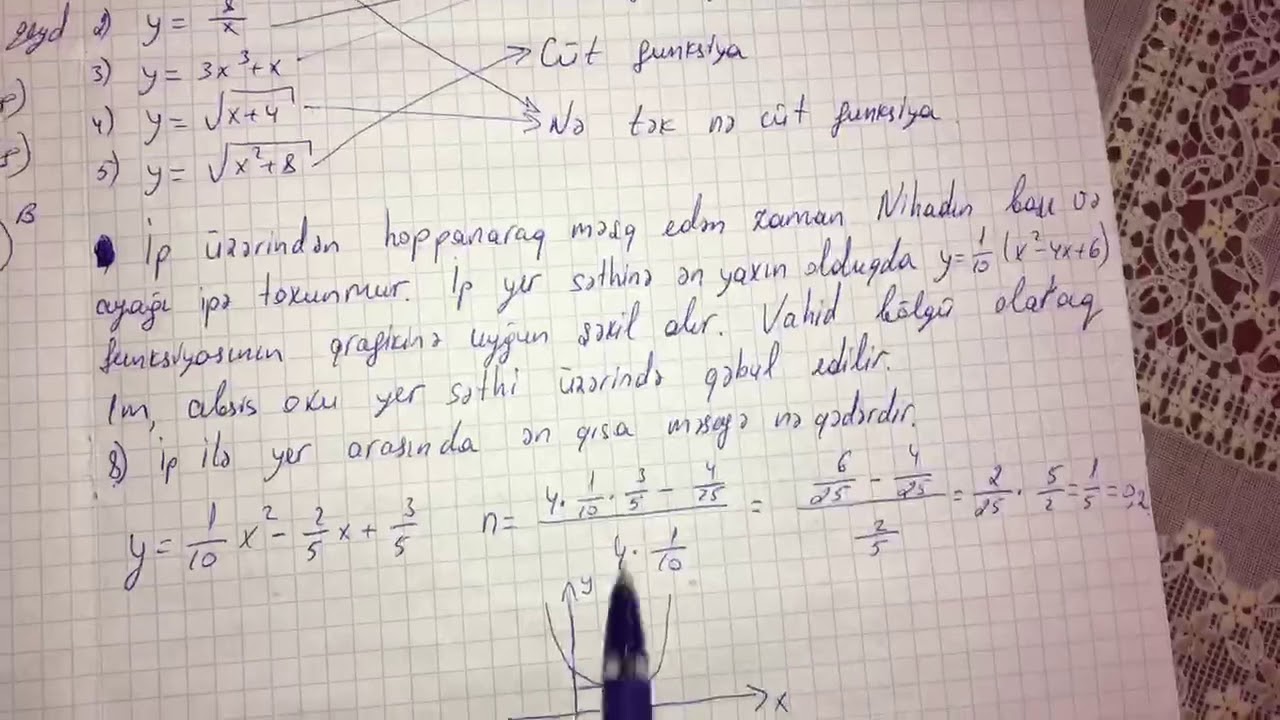 qeyd 2) y = 8/x
3) y = 3x³+x
Cüt funksiya
4) y = √x+4
Nə tək nə cüt funksiya
5) y = √x²+8
B
İp üzərindən hoppanaraq məşq edən zaman Nihadın başı və
ayağı ipə toxunmur. İp yer səthinə ən yaxın olduqda y=1/10 (x²-4x+6)
funksiyasının qrafikinə uyğun şəkil alır. Vahid bölgü olaraq
1m, absis oxu yer səthi üzərində qəbul edilir.
8) ip ilə yer arasında ən qısa məsafə nə qədərdir.
y = 1/10 x² - 2/5 x + 3/5 n = (4 · 1/10 · 3/5 - 4/25) / (4 · 1/10) = (6/25 - 4/25) / (2/5) = 2/25 · 5/2 = 1/5 = 0,2
y
x